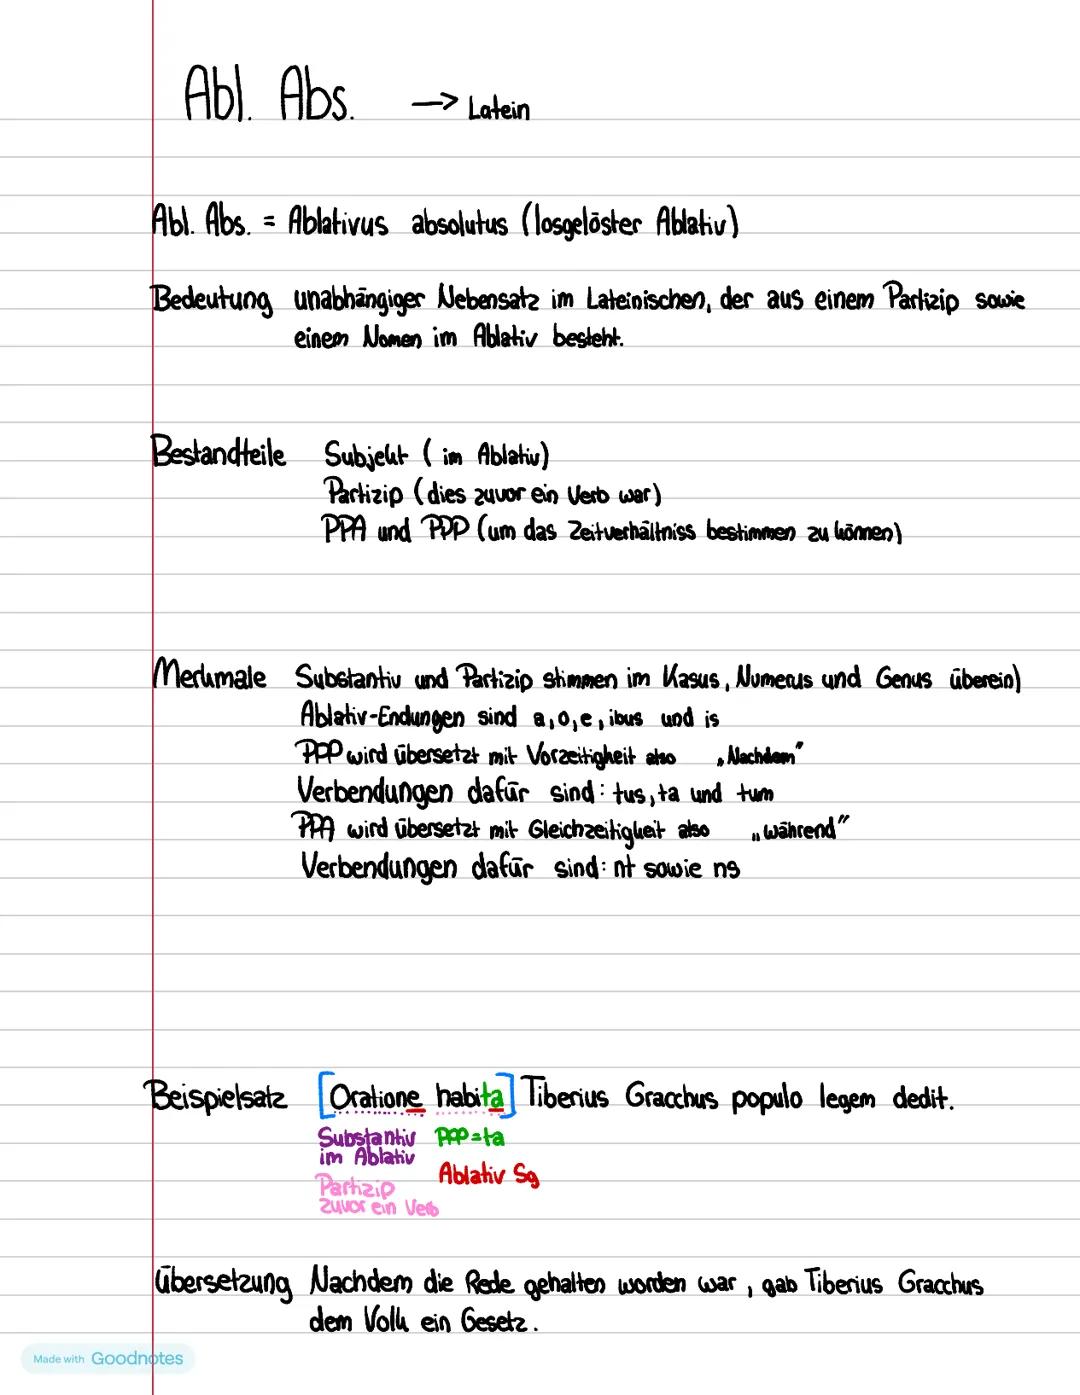 Abl. Abs. → Latein
Abl. Abs. = Ablativus absolutus (losgelöster Ablativ)
Bedeutung unabhängiger Nebensatz im Lateinischen, der aus einem Partizip sowie
einem Nomen im Ablativ besteht.
Bestandteile Subjekt (im Ablativ)
Partizip (dies zuvor ein Verb war)
PPA und PPP (um das Zeitverhältniss bestimmen zu können)
Merkmale Substantiv und Partizip stimmen im Kasus, Numerus und Genus überein)
Ablativ-Endungen sind a, o, e, ibus und is
PPP wird übersetzt mit Vorzeitigkeit also „Nachdem"
Verbendungen dafür sind: tus, ta und tum
PPA wird übersetzt mit Gleichzeitigkeit also „während"
Verbendungen dafür sind: nt sowie ns
Beispielsatz [Oratione habita] Tiberius Gracchus populo legem dedit.
Substantiv PPP=ta
im Ablativ
Ablativ Sg
Partizip
zuvor ein Verb
Übersetzung Nachdem die Rede gehalten worden war, gab Tiberius Gracchus
dem Volk ein Gesetz.
Made with Goodnotes